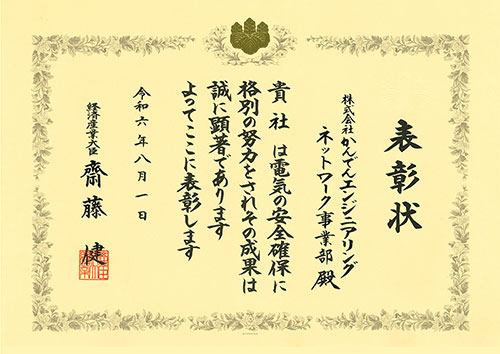 表彰状
株式会社かんでんエンジニアリング
ネットワーク事業部 殿
貴社は電気の安全確保に
格別の努力をされその成果は
誠に顕著であります
よってここに表彰します
令和六年八月一日
経済産業大臣 齋藤 健